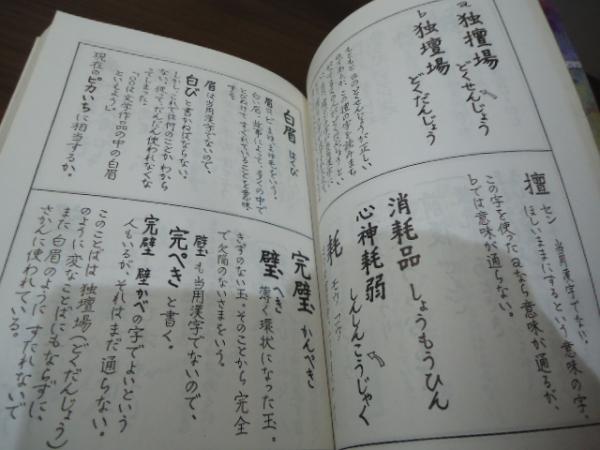 a 独擅場 どくせんじょう
b 独壇場 どくだんじょう
擅 セン 当用漢字でない。
ほしいままにするという意味の字。
この字を使ったaなら意味が通るが、
bでは意味が通らない。
消耗品 しょうもうひん
心神耗弱 しんしんこうじゃく
耗 モウ コウ
白眉 はくび
眉は当用漢字でないので、
白び と書かねばならない。
しかし、これでは何のことかわから
ない。従って、だんだん使われなくな
ってしまった。
「〇〇は文学作品の中の白眉
といえよう」
現在のピカいちに相当するか。
完璧 かんぺき
璧 へき 薄く環状になった玉。
きずのない玉。そのことから完全
で欠陥のないさまをいう。
璧も当用漢字でないので、
完ぺき と書く。
完壁 壁かべの字でよいという
人もいるが、それはまだ通らない。
このことばは独壇場(どくだんじょう)
のように変なことばにもならずに、
また白眉のようにすたれないで
さかんに使われている。